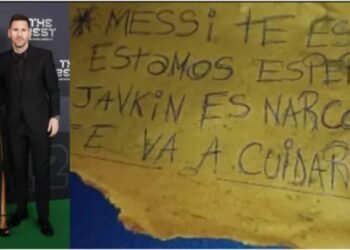 THE
BEST
*MESSI TE ES
ESTAMOS ESPER
JAVKIN ES NARCO
TE VA A CUIDAR